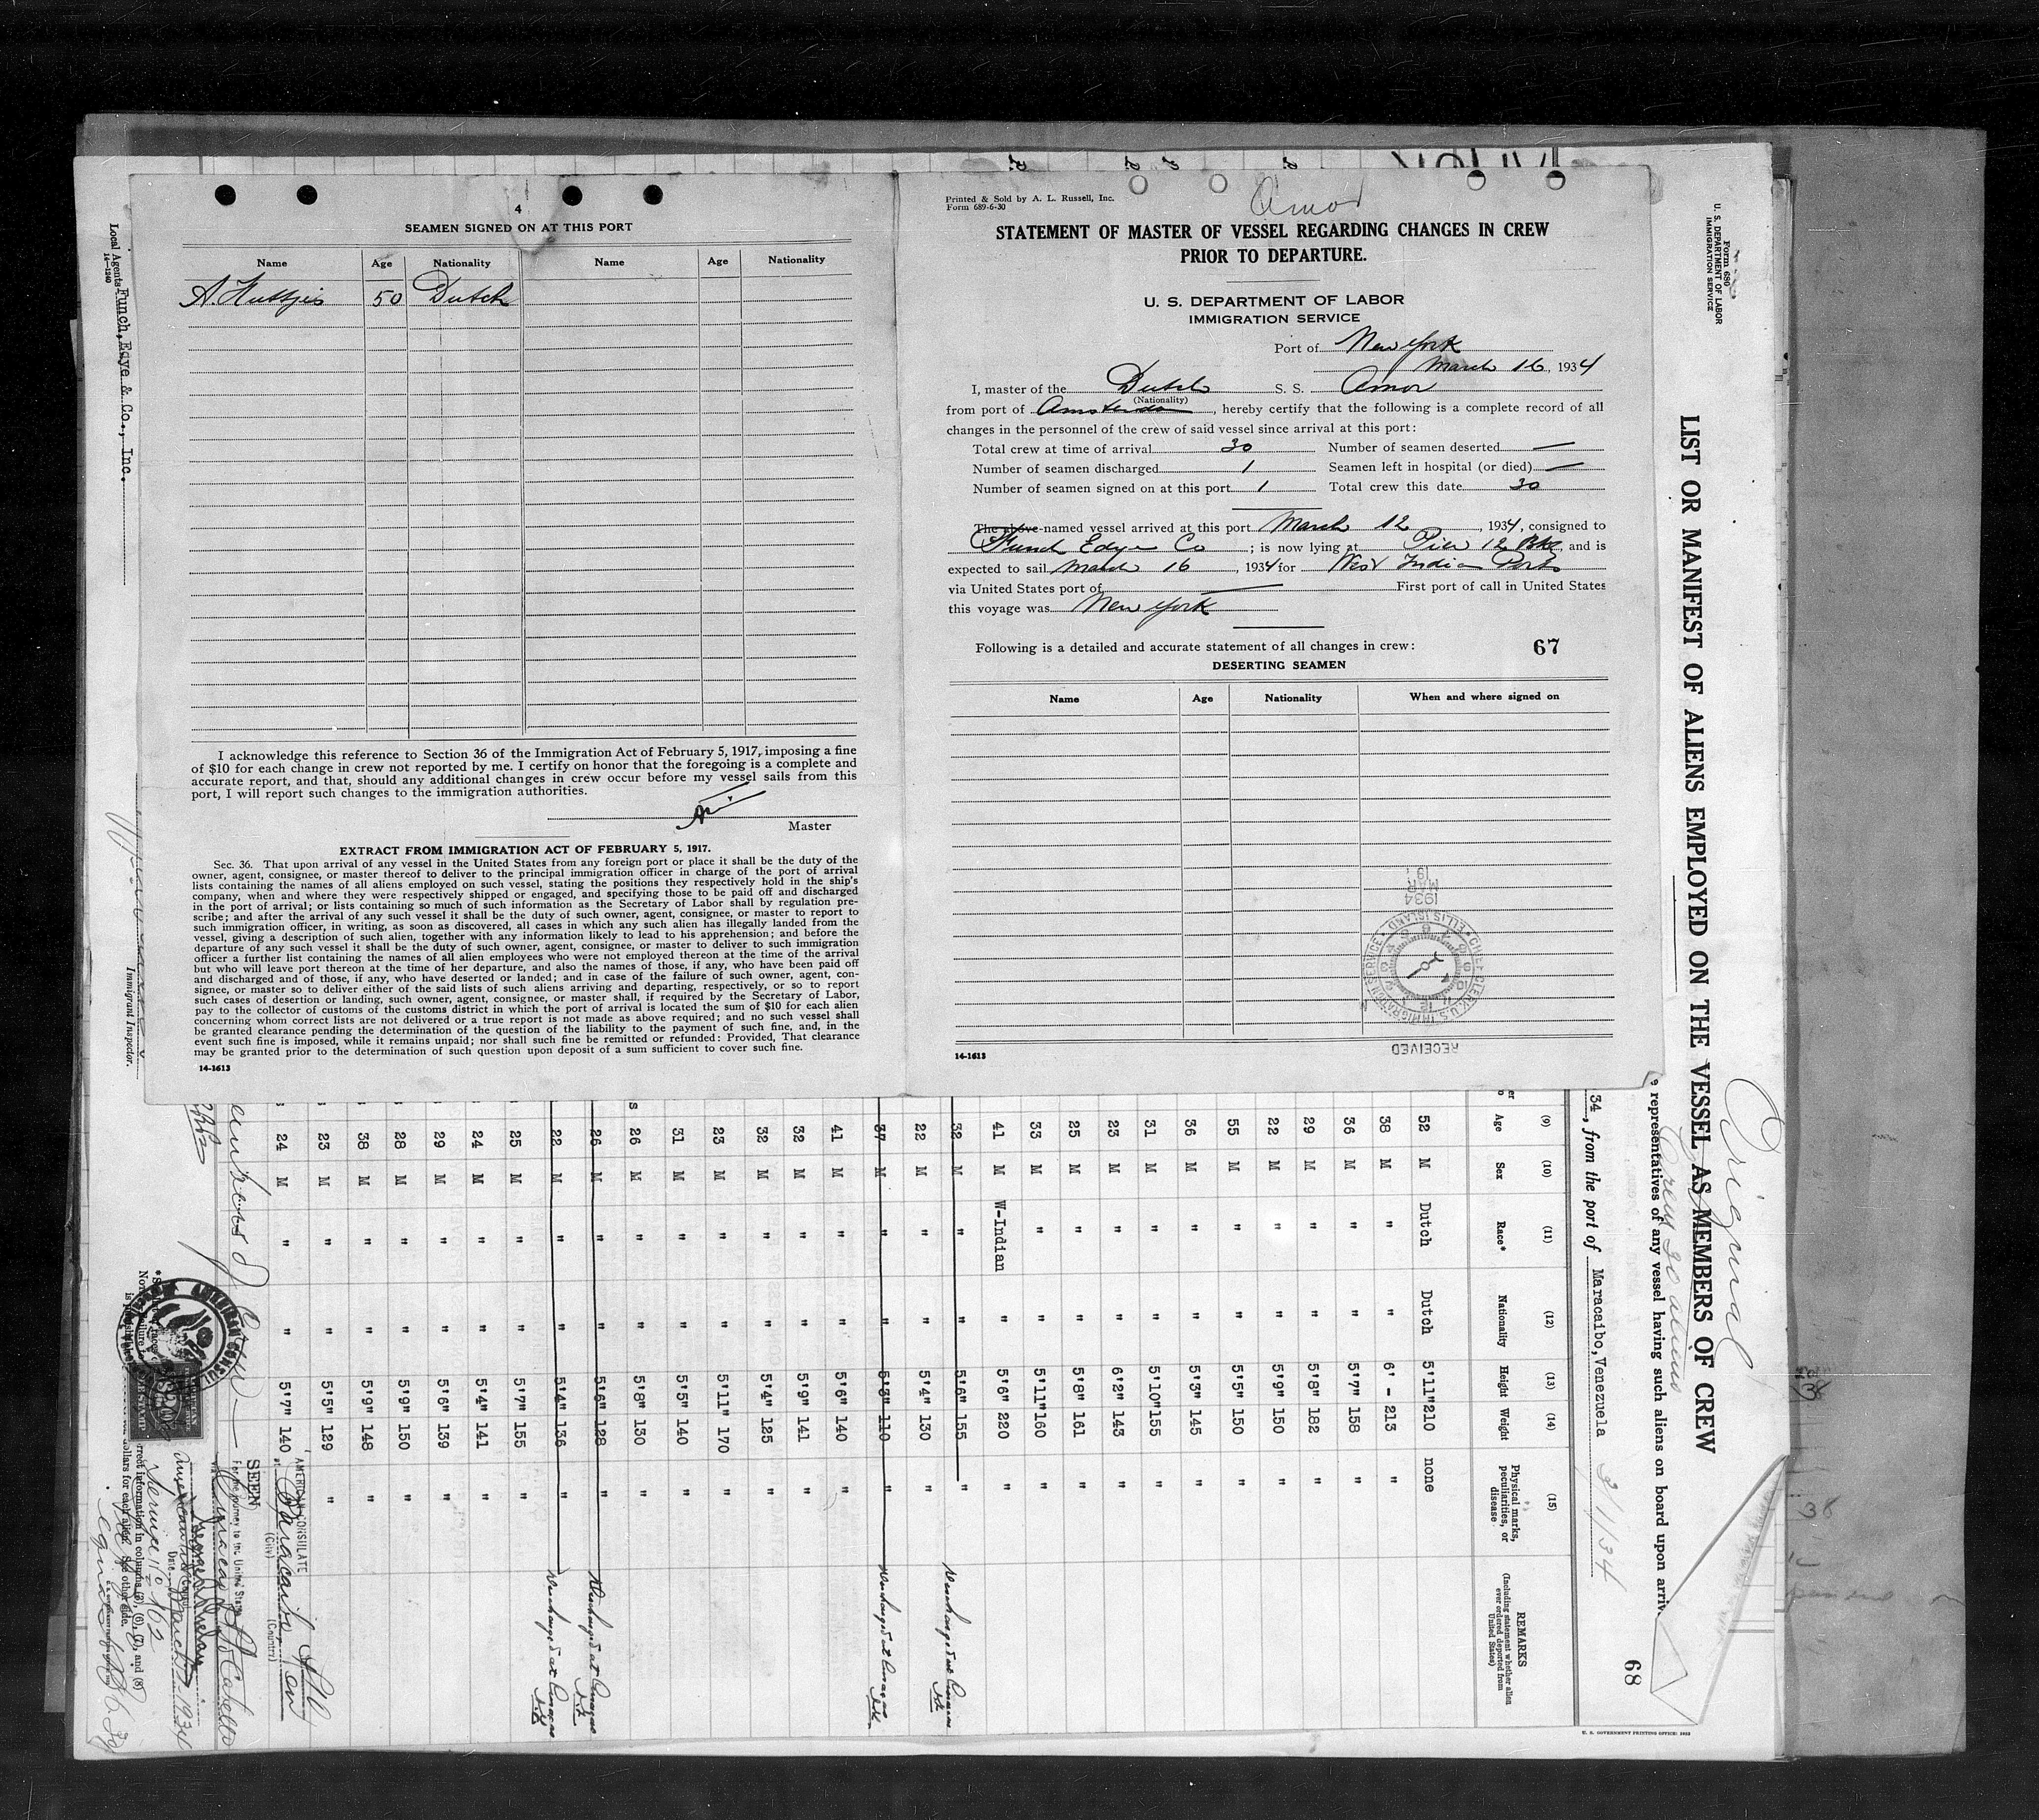 4
SEAMEN SIGNED ON AT THIS PORT
Name Age Nationality Name Age Nationality
A. 50 Dutch
I acknowledge this reference to Section 36 of the Immigration Act of February 5, 1917, imposing a fine
of $10 for each change in crew not reported by me. I certify on honor that the foregoing is a complete and
accurate report, and that, should any additional changes in crew occur before my vessel sails from this
port, I will report such changes to the immigration authorities.
Master
EXTRACT FROM IMMIGRATION ACT OF FEBRUARY 5, 1917.
Sec. 36. That upon arrival of any vessel in the United States from any foreign port or place it shall be the duty of the
owner, agent, consignee, or master thereof to deliver to the principal immigration officer in charge of the port of arrival
lists containing the names of all aliens employed on such vessel, stating the positions they respectively hold in the ship's
company, when and where they were respectively shipped or engaged, and specifying those to be paid off and discharged
in the port of arrival; or lists containing so much of such information as the Secretary of Labor shall by regulation pre-
scribe; and after the arrival of any such vessel it shall be the duty of such owner, agent, consignee, or master to report to
such immigration officer, in writing, as soon as discovered, all cases in which any such alien has illegally landed from the
vessel, giving a description of such alien, together with any information likely to lead to his apprehension; and before the
departure of any such vessel it shall be the duty of such owner, agent, consignee, or master to deliver to such immigration
officer a further list containing the names of all alien employees who were not employed thereon at the time of the arrival
but who will leave port thereon at the time of her departure, and also the names of those, if any, who have been paid off
and discharged and of those, if any, who have deserted or landed; and in case of the failure of such owner, agent, con-
signee, or master so to deliver either of the said lists of such aliens arriving and departing, respectively, or so to report
such cases of desertion or landing, such owner, agent, consignee, or master shall, if required by the Secretary of Labor,
pay to the collector of customs of the customs district in which the port of arrival is located the sum of $10 for each alien
concerning whom correct lists are not delivered or a true report is not made as above required; and no such vessel shall
be granted clearance pending the determination of the question of the liability to the payment of such fine, and, in the
event such fine is imposed, while it remains unpaid; nor shall such fine be remitted or refunded: Provided, That clearance
may be granted prior to the determination of such question upon deposit of a sum sufficient to cover such fine.
14-1613
Printed & Sold by A. L. Russell, Inc.
Form 689-6-30
Amor
STATEMENT OF MASTER OF VESSEL REGARDING CHANGES IN CREW
PRIOR TO DEPARTURE.
U. S. DEPARTMENT OF LABOR
IMMIGRATION SERVICE
Port of New York
March 16, 1934
I, master of the Dutch S. S. Amor
(Nationality)
from port of Amsterdam, hereby certify that the following is a complete record of all
changes in the personnel of the crew of said vessel since arrival at this port:
Total crew at time of arrival 30 Number of seamen deserted —
Number of seamen discharged 1 Seamen left in hospital (or died) —
Number of seamen signed on at this port 1 Total crew this date 30
The above-named vessel arrived at this port March 12, 1934, consigned to
Funch Edye Co; is now lying at Pier 12 Bkl, and is
expected to sail March 16, 1934 for West Indian Ports
via United States port of — First port of call in United States
this voyage was New York
Following is a detailed and accurate statement of all changes in crew: 67
DESERTING SEAMEN
Name Age Nationality When and where signed on
1934
MAR
19
CHIEF CLERK U.S. IMMIGRATION SERVICE ELLIS ISLAND
RECEIVED
14-1613
Form 680
U. S. DEPARTMENT OF LABOR
IMMIGRATION SERVICE
Original
LIST OR MANIFEST OF ALIENS EMPLOYED ON THE VESSEL AS MEMBERS OF CREW
Crew 30 aliens
representatives of any vessel having such aliens on board upon arriv
68
34, from the port of Maracaibo,Venezuela 3/1/34
(9) (10) (11) (12) (13) (14) (15)
Age Sex Race* Nationality Height Weight Physical marks, peculiarities, or disease REMARKS
(Including statement whether alien ever ordered deported from United States)
52 M Dutch Dutch 5'11" 210 none
38 M " " 6' - 213 "
36 M " " 5'7" 158 "
29 M " " 5'8" 182 "
22 M " " 5'9" 150 "
55 M " " 5'5" 150 "
36 M " " 5'3" 145 "
31 M " " 5'10" 155 "
23 M " " 6'2" 143 "
25 M " " 5'8" 161 "
33 M " " 5'11" 160 "
41 M W-Indian " 5'6" 220 "
32 M " " 5'6" 155 " Discharged at Curaçao
22 M " " 5'4" 130 "
37 M " " 5'3" 110 " Discharged at Curaçao
41 M " " 5'6" 140 "
32 M " " 5'9" 141 "
32 M " " 5'4" 125 "
23 M " " 5'11" 170 "
31 M " " 5'5" 140 "
26 M " " 5'8" 130 "
26 M " " 5'6" 128 " Discharged at Curaçao
22 M " " 5'4" 136 " Discharged at Curaçao
25 M " " 5'7" 155 "
24 M " " 5'4" 141 "
29 M " " 5'6" 139 "
28 M " " 5'9" 150 "
38 M " " 5'9" 148 "
23 M " " 5'5" 129 "
24 M " " 5'7" 140
AMERICAN CONSULATE
at Maracaibo, Ven
(City) (Country)
SEEN
For the journey to the United States
Date March 1, 1934
Service No 162
Local Agents Funch, Edye & Co., Inc.
14-1240
Immigrant Inspector.
U. S. GOVERNMENT PRINTING OFFICE: 1932